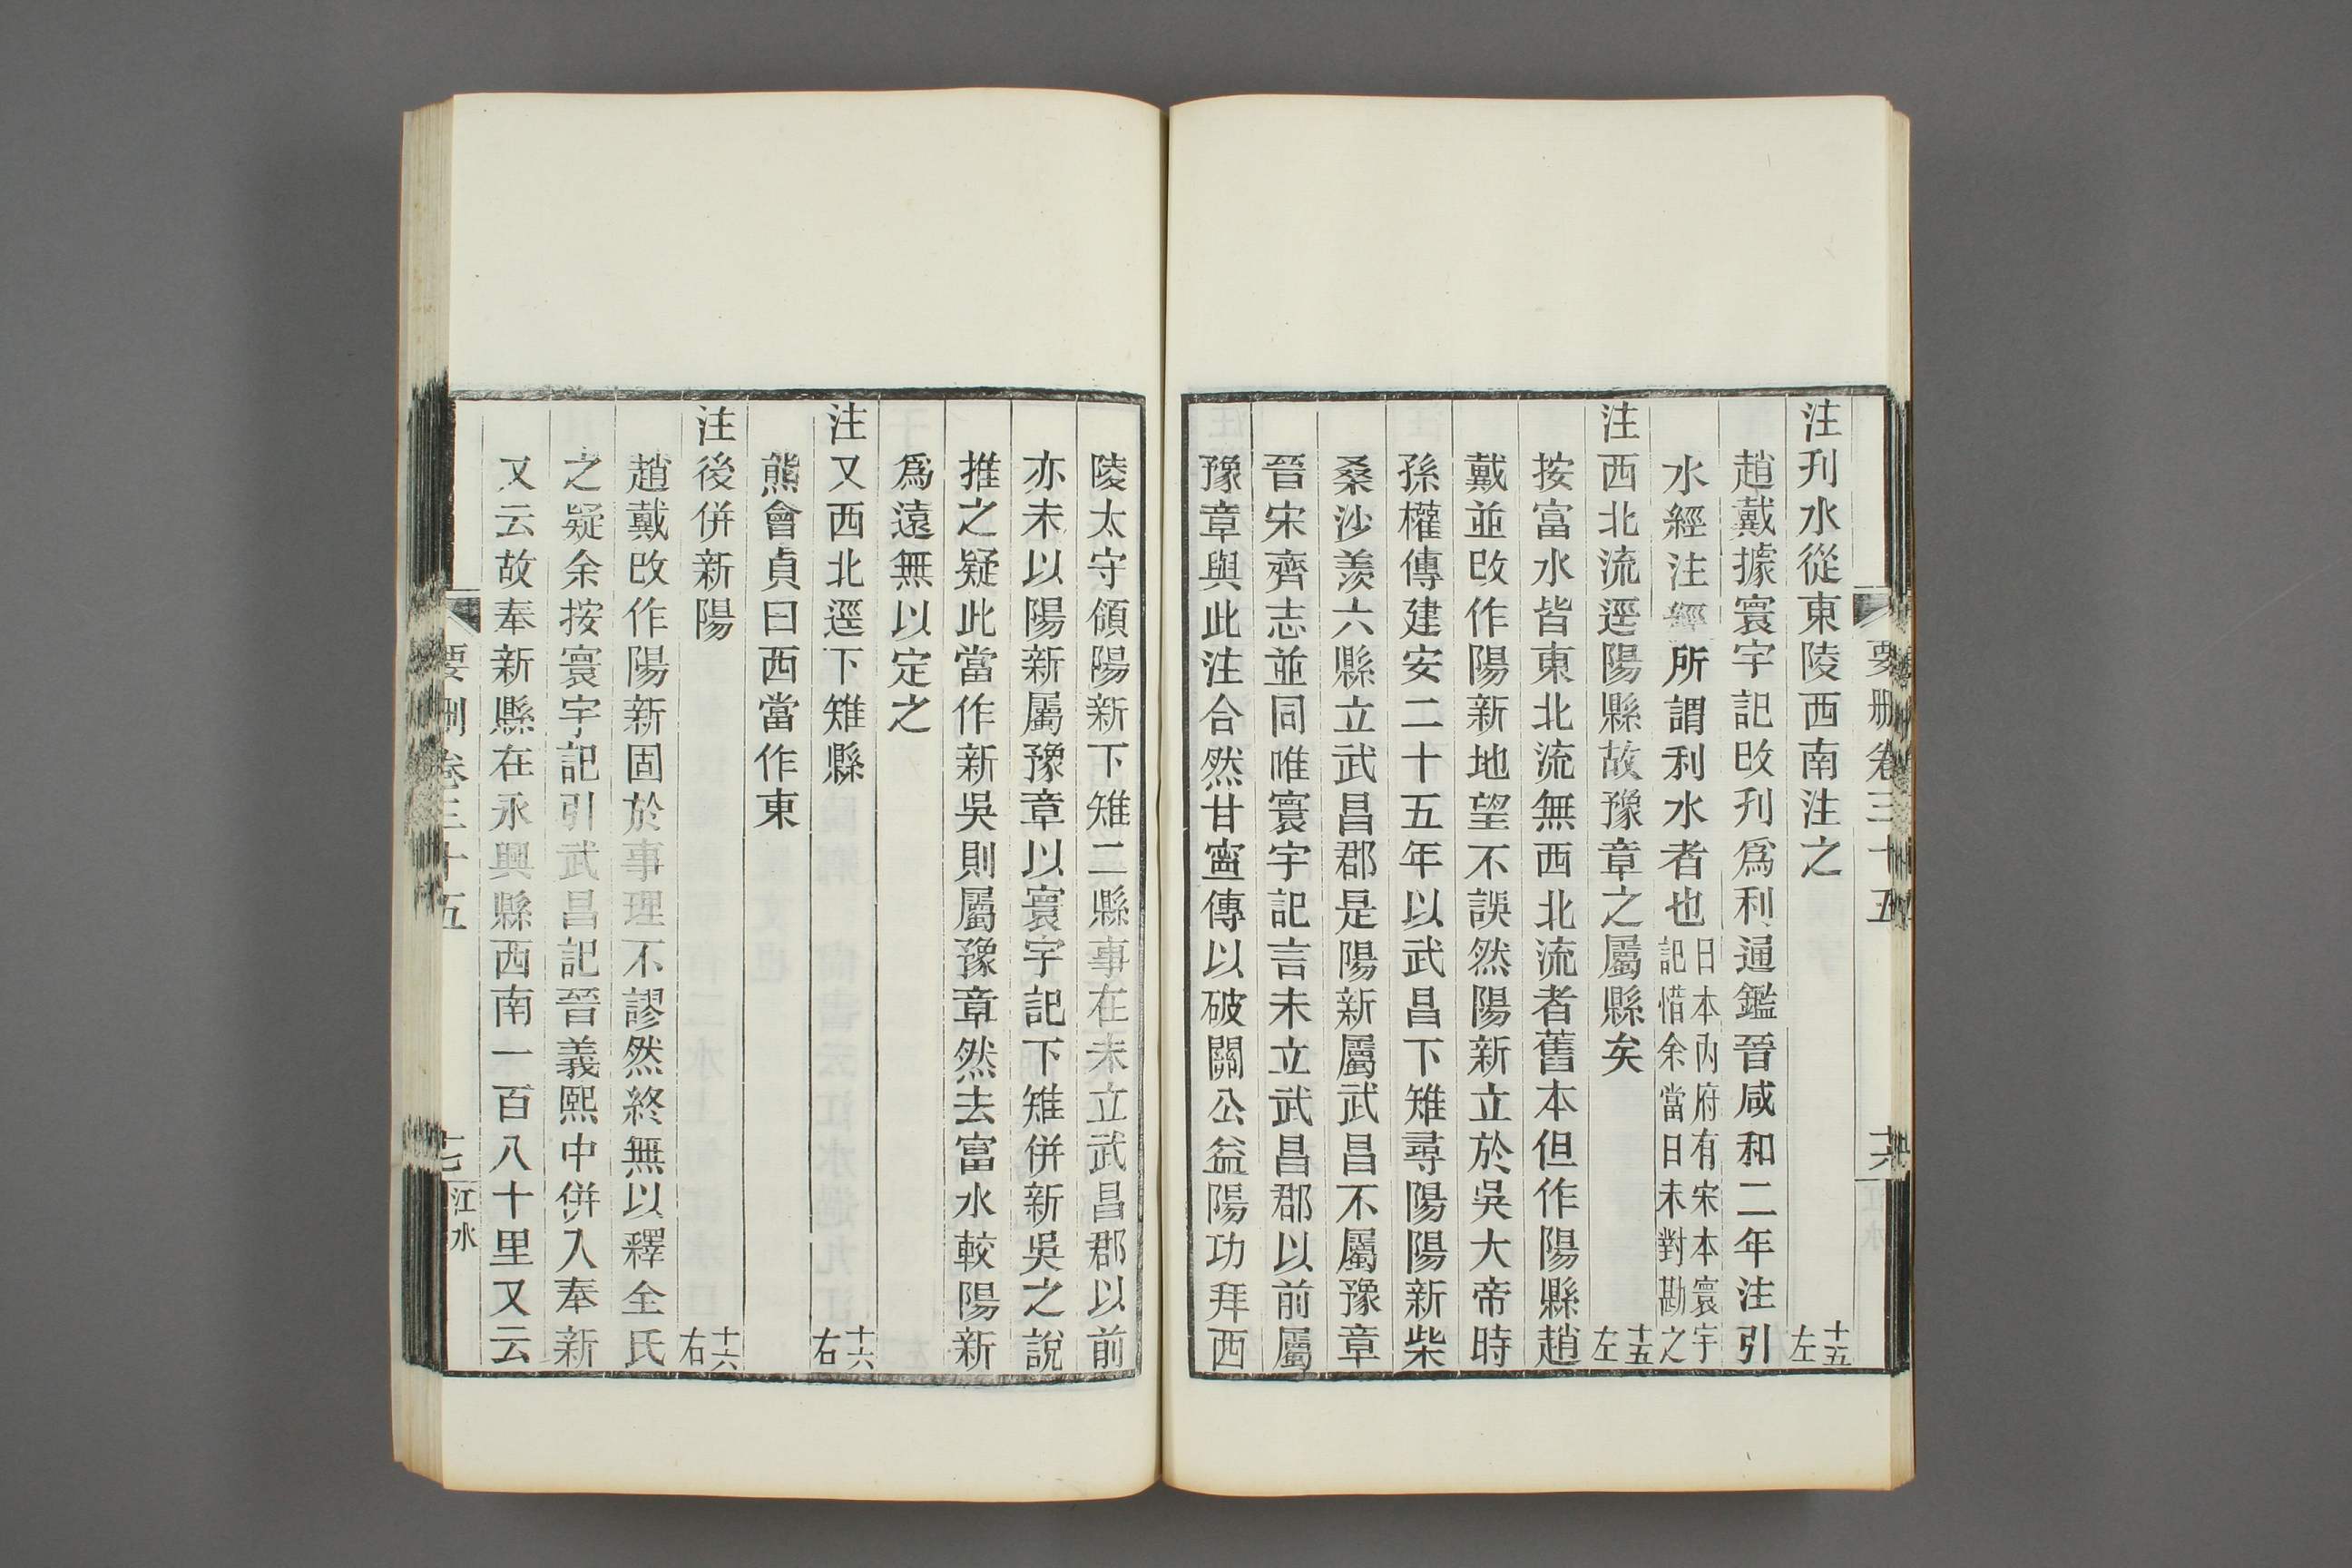 要刪卷三十五
注刋水從東陵西南注之 十五左
趙戴據寰宇記改刋爲利通鑑晉咸和二年注引
水經注經所謂利水者也 日本內府有宋本寰宇記惜余當日未對勘之
注西北流逕陽縣故豫章之屬縣矣 十五左
按富水皆東北流無西北流者舊本但作陽縣趙
戴並改作陽新地望不誤然陽新立於吳大帝時
孫權傳建安二十五年以武昌下雉尋陽陽新柴
桑沙羨六縣立武昌郡是陽新屬武昌不屬豫章
晉宋齊志並同唯寰宇記言未立武昌郡以前屬
豫章與此注合然甘寧傳以破關公益陽功拜西
陵太守領陽新下雉二縣事在未立武昌郡以前
亦未以陽新屬豫章以寰宇記下雉併新吳之說
推之疑此當作新吳則屬豫章然去富水較陽新
爲遠無以定之
注又西北逕下雉縣 十六右
熊會貞曰西當作東
注後併新陽 十六右
趙戴改作陽新固於事理不謬然終無以釋全氏
之疑余按寰宇記引武昌記晉義熙中併入奉新
又云故奉新縣在永興縣西南一百八十里又云
要刪卷三十五 十七 江水